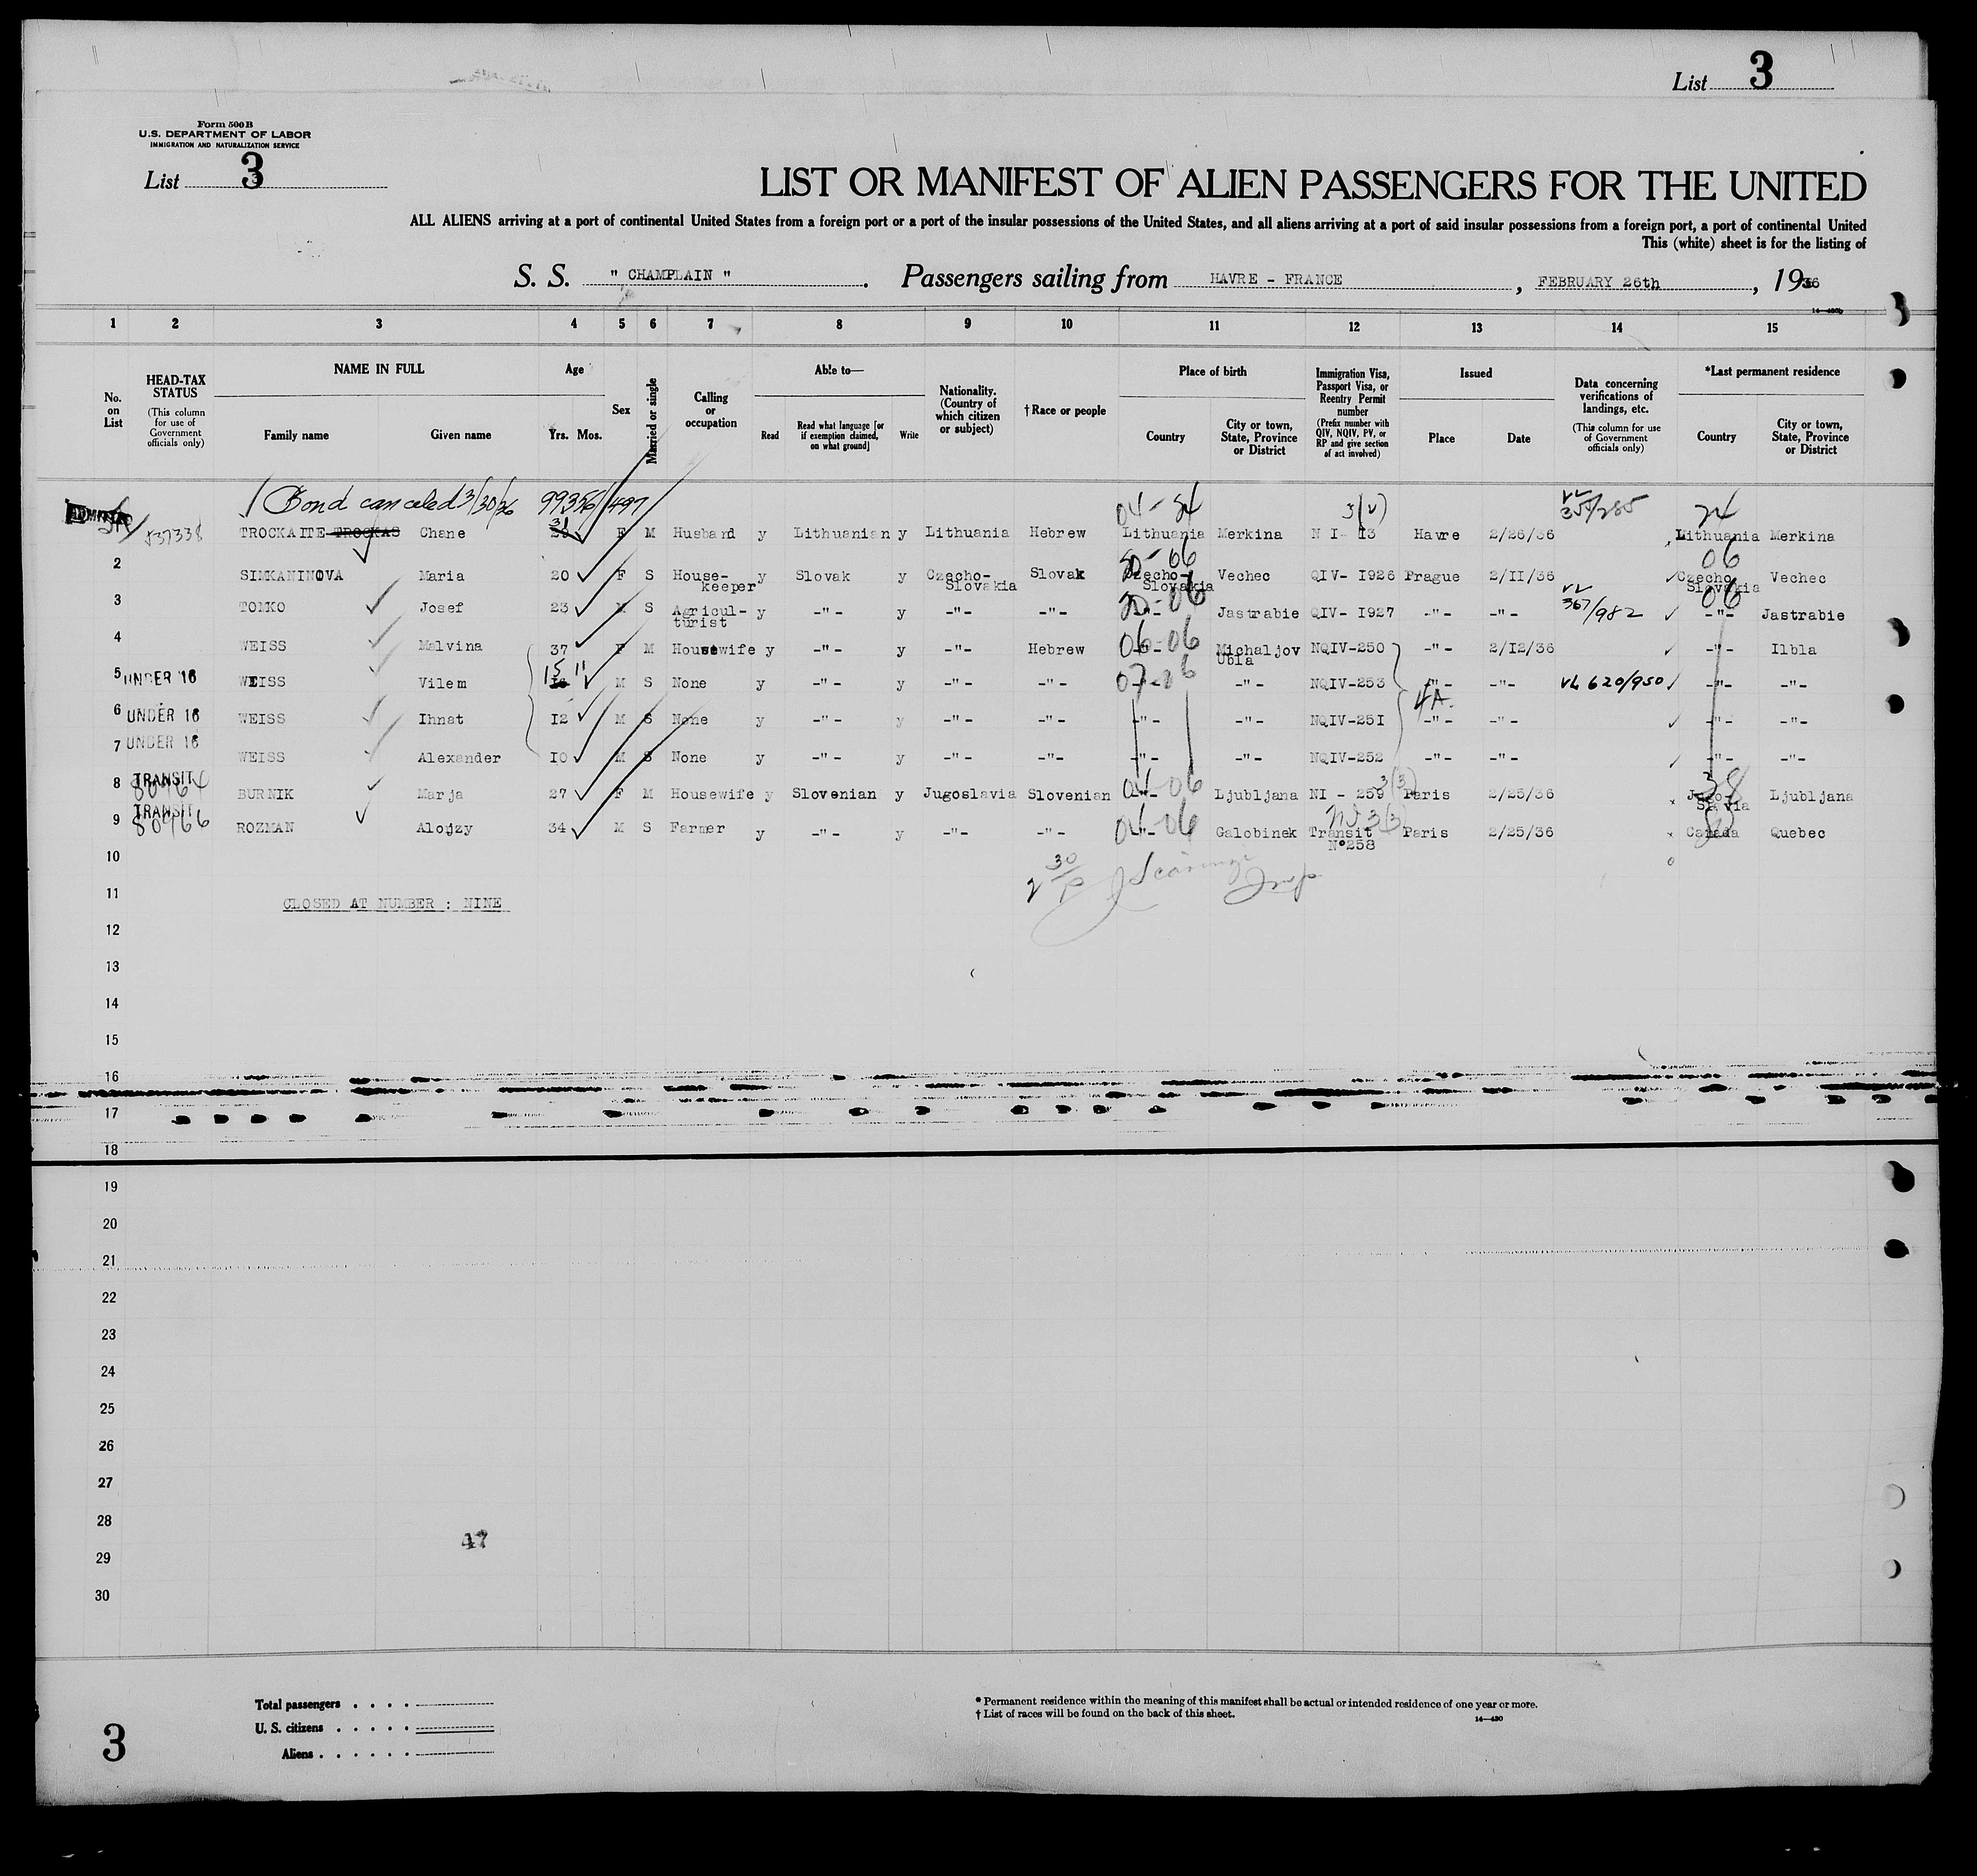 List 3
Form 500 B
U.S. DEPARTMENT OF LABOR
IMMIGRATION AND NATURALIZATION SERVICE
List 3
LIST OR MANIFEST OF ALIEN PASSENGERS FOR THE UNITED
ALL ALIENS arriving at a port of continental United States from a foreign port or a port of the insular possessions of the United States, and all aliens arriving at a port of said insular possessions from a foreign port, a port of continental United
This (white) sheet is for the listing of
S. S. " CHAMPLAIN " . Passengers sailing from HAVRE - FRANCE , FEBRUARY 26th , 1936
1 2 3 4 5 6 7 8 9 10 11 12 13 14 15
No. on List
HEAD-TAX STATUS
(This column for use of Government officials only)
NAME IN FULL
Family name
Given name
Age
Yrs. Mos.
Sex
Married or single
Calling or occupation
Able to—
Read
Read what language [or if exemption claimed, on what ground]
Write
Nationality. (Country of which citizen or subject)
†Race or people
Place of birth
Country
City or town, State, Province or District
Immigration Visa, Passport Visa, or Reentry Permit number
(Prefix number with QIV, NQIV, PV, or RP and give section of act involved)
Issued
Place
Date
Data concerning verifications of landings, etc.
(This column for use of Government officials only)
*Last permanent residence
Country
City or town, State, Province or District
Bond canceled 3/30/36 99356/497 04-24 3(2) 24
TROCKAITE TROCKAS Chane 31 F M Husband y Lithuanian y Lithuania Hebrew Lithuania Merkina N I- I3 Havre 2/26/36 Lithuania Merkina
2 SIMKANINOVA Maria 20 F S House-keeper y Slovak y Czecho-Slovakia Slovak Czecho-Slovakia Vechec QIV- I926 Prague 2/II/36 Czecho Slovakia 06 Vechec
3 TOMKO Josef 23 M S Agricul-turist y -"- y -"- -"- -"- Jastrabie QIV- I927 -"- -"- 367/982 06 -"- Jastrabie
4 WEISS Malvina 37 F M Housewife y -"- y -"- Hebrew 06-06 -"- Michaljov NQIV-250 -"- 2/I2/36 -"- Ilbla
5 UNDER 16 WEISS Vilem 15 11 M S None y -"- y -"- -"- Ubla -"- NQIV-253 -"- -"- VL 620/950 -"- -"-
4A.
6 UNDER 16 WEISS Ihnat I2 M S None y -"- y -"- -"- -"- -"- NQIV-25I -"- -"- -"- -"-
7 UNDER 16 WEISS Alexander IO M S None y -"- y -"- -"- -"- -"- NQIV-252 -"- -"- -"- -"-
8 TRANSIT 80964 BURNIK Marja 27 F M Housewife y Slovenian y Jugoslavia Slovenian -"- Ljubljana NI - 259 3(3) Paris 2/25/36 Jugo-Slavia Ljubljana
9 TRANSIT 80966 ROZMAN Alojzy 34 M S Farmer y -"- y -"- -"- -"- Galobinek Transit N°258 Paris 2/25/36 Canada Quebec
10
11 CLOSED AT NUMBER : NINE
12
13
14
15
16
17
18
19
20
21
22
23
24
25
26
27
28
47
29
30
Total passengers . . . .
U. S. citizens . . . . .
Aliens . . . . . .
3
* Permanent residence within the meaning of this manifest shall be actual or intended residence of one year or more.
† List of races will be found on the back of this sheet.
14—430